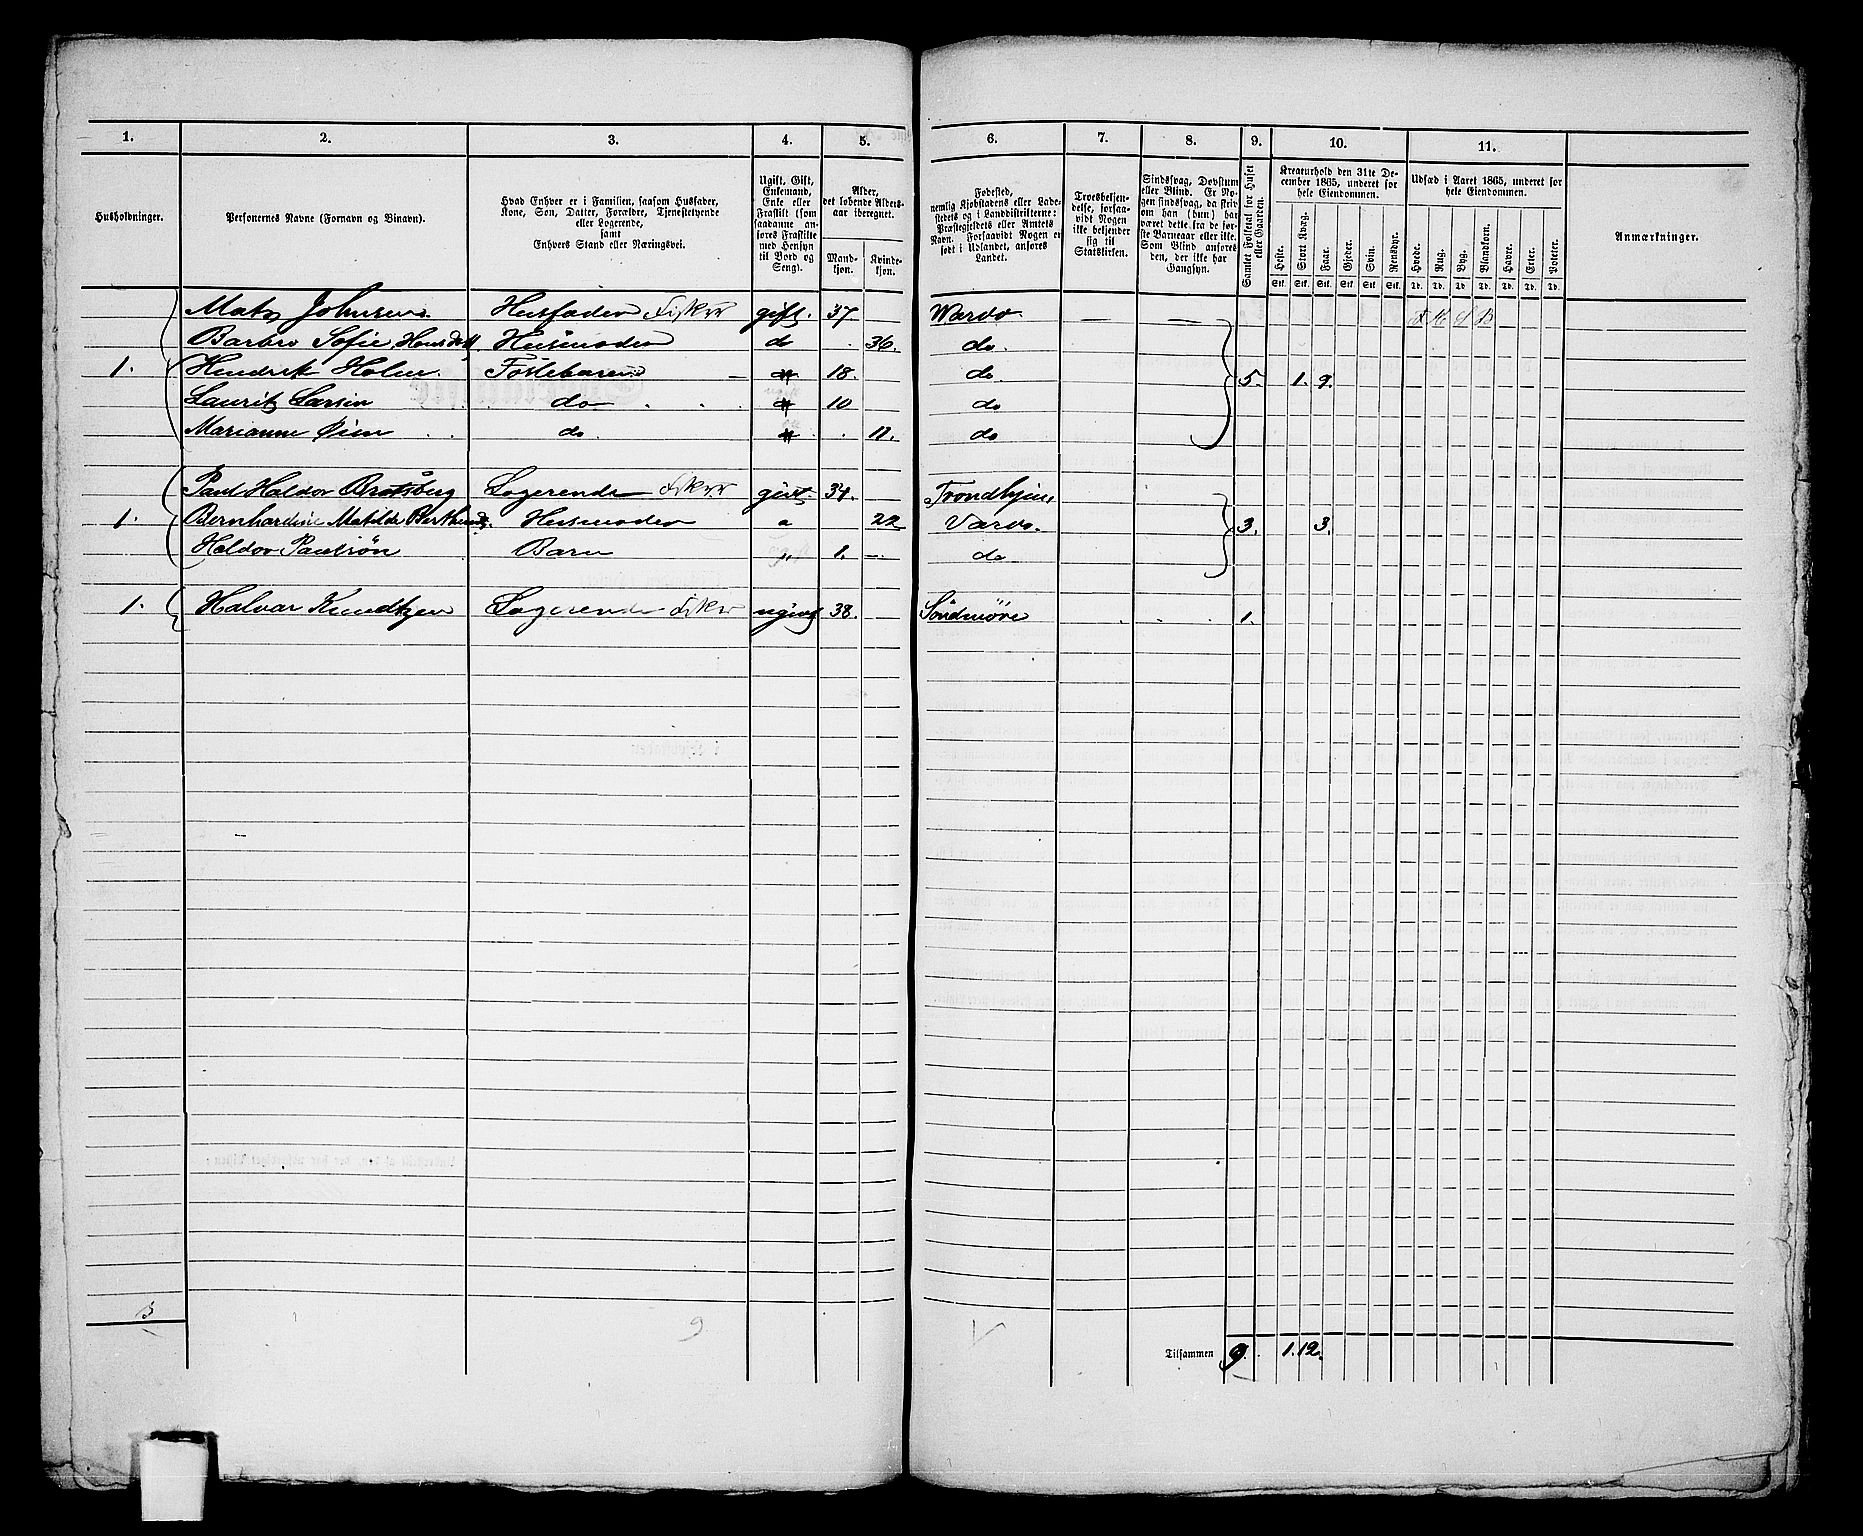 1. 2. 3. 4. 5. 6. 7. 8. 9. 10. 11.
Husholdninger.
Personernes Navne (Fornavn og Binavn).
Hvad Enhver er i Familien, saasom Husfader,
Kone, Søn, Datter, Forældre, Tjenestetyende
eller Logerende,
samt
Enhvers Stand eller Næringsvei.
Ugift, Gift,
Enkemand,
Enke eller
Fraskilt (som
saadanne an-
føres Fraskilte
med Hensyn
til Bord og
Seng).
Alder,
det løbende Alders-
aar iberegnet.
Mand-
kjøn.
Kvinde-
kjøn.
Fødested,
nemlig Kjøbstadens eller Lade-
stedets og i Landdistrikterne:
Præstegjeldets eller Amtets
Navn. Forsaavidt Nogen er
født i Udlandet, anføres
Landet.
Troesbekjen-
delse, forsaa-
vidt Nogen
ikke bekjender
sig til
Statskirken.
Sindssvag, Døvstum
eller Blind. Er No-
gen sindssvag, da skriv
om han (hun) har
været dette fra de før-
ste Barneaar eller ikke.
Som Blind anføres
den, der ikke har
Gangsyn.
Samlet Folketal for Huset
eller Gaarden.
Kreaturhold den 31te De-
cember 1865, underet for
hele Eiendommen.
Heste. Stort Kvæg. Faar. Gjeder. Sviin. Rensdyr.
Stk. Stk. Stk. Stk. Stk. Stk.
Udsæd i Aaret 1865, underet for
hele Eiendommen.
Hvede. Rug. Byg. Blandkorn. Havre. Erter. Poteter.
Td. Td. Td. Td. Td. Td. Td.
Anmærkninger.
Mats Johnsen Husfader Fisker gift. 37. Wardø
Barbro Sofie Hansdatt. Husmoder do 36. do.
1. Hendrik Holm Fostebarn 18. do 5. 1. 9.
Laurits Larsen do 10 do
Marianne Øien do. 11. do
Paul Haldor Bratsberg Logerende Fisker givt. 34. Trondhjem
1. Bernhardine Matilde Husmoder 22 Vardø. 3. 3.
Haldor Paulsøn Barn " 1. do
1. Halvar Knudtzen Logerende Fisker ugivt 38. Søndmøre 1.
3 9 V
Tilsammen 9. 1. 12.